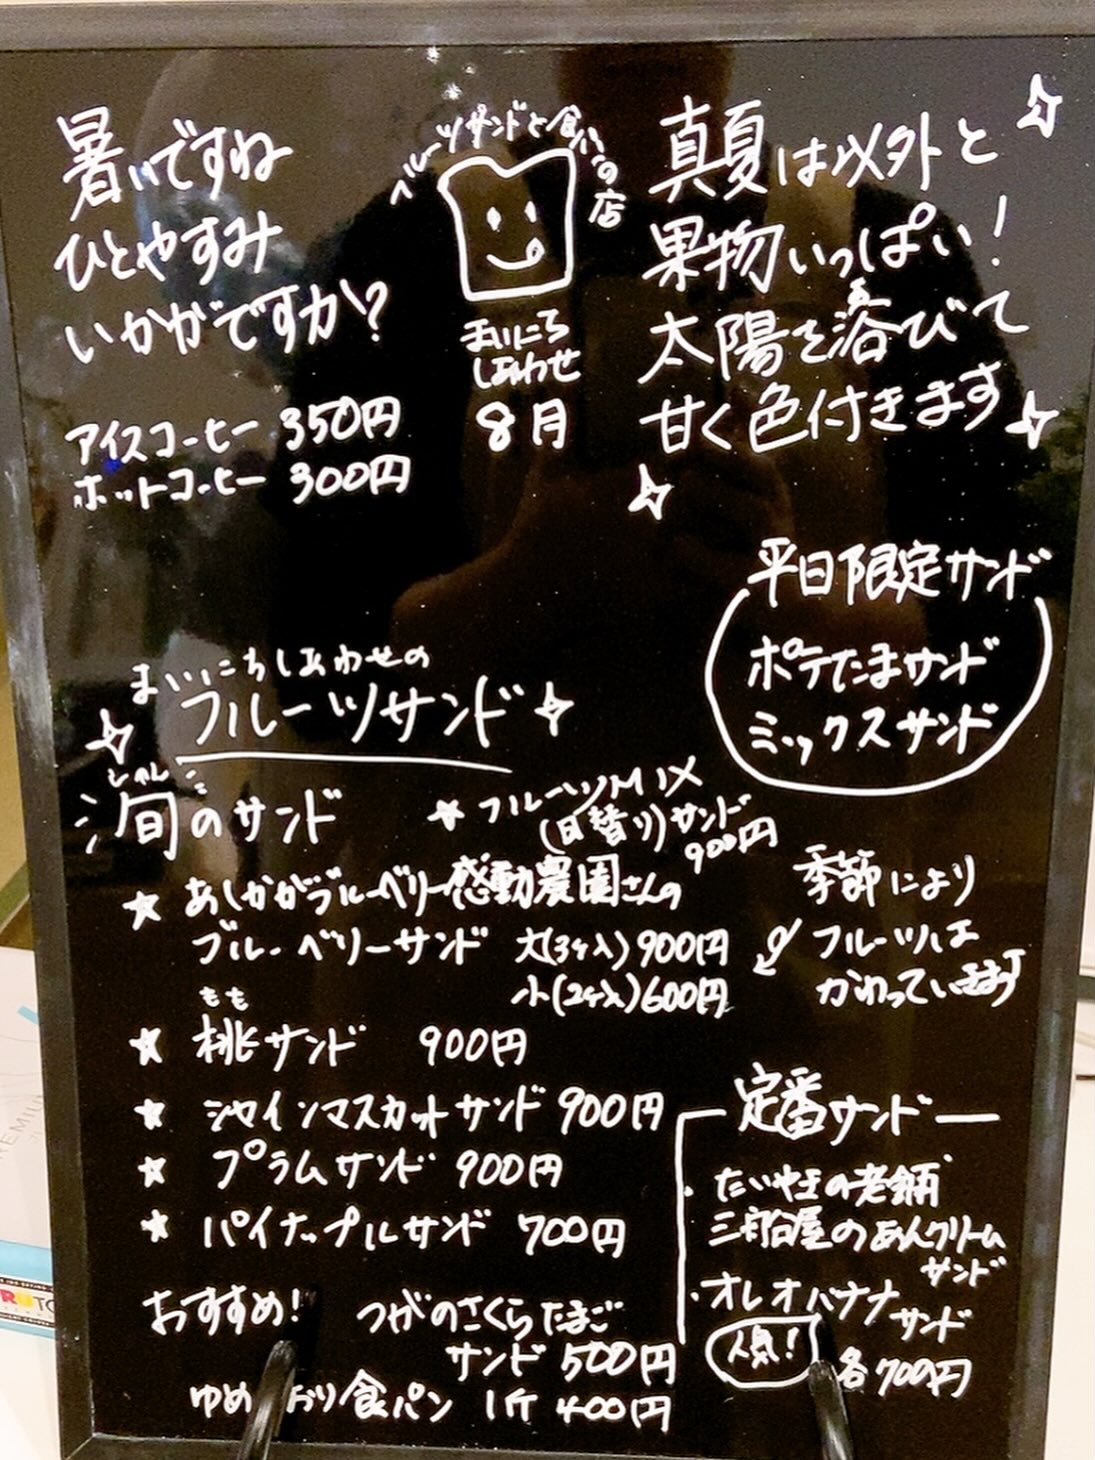 暑いですね
ひとやすみ
いかがですか?
アイスコーヒー 350円
ホットコーヒー 300円
フルーツサンドと食パンの店
まいにち
しあわせ
8月
真夏は以外と
果物いっぱい!
あ
太陽を浴びて
甘く色付きます
平日限定サンド
ポテたまサンド
ミックスサンド
まいにちしあわせの
フルーツサンド
しゅん
旬のサンド
★ フルーツMIX
(日替り)サンド
900円
★ あしかがブルーベリー感動農園さんの
ブルーベリーサンド 大(3ケ入)900円
小(2ケ入)600円
季節により
フルーツは
かわっています
もも
★ 桃サンド 900円
★ シャインマスカットサンド 900円
★ プラムサンド 900円
★ パイナップルサンド 700円
定番サンド
・たいやきの老舗
三宅屋のあんクリーム
サンド
・オレオバナナ
サンド
人気!
各700円
おすすめ! つがのさくらたまご
サンド 500円
ゆめ おり食パン 1斤 400円